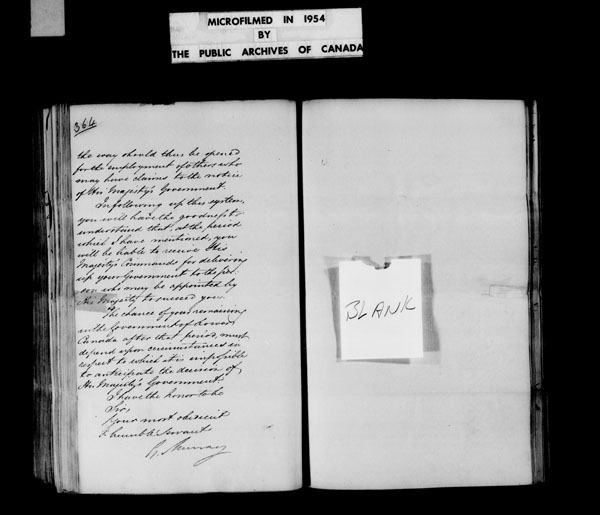 MICROFILMED IN 1954
BY
THE PUBLIC ARCHIVES OF CANADA
364
the way should thus be opened
for the employment of others who
may have claims to the notice
of His Majesty's Government.
In following up this system,
you will have the goodness to
understand that, at the period
which I have mentioned, you
will be liable to receive His
Majesty's Commands for delivering
up your Government to the per-
son who may be appointed by
His Majesty to succeed you.
The chance of your remaining
in the Government of Lower
Canada after that period, must
depend upon circumstances in
respect to which it is impossible
to anticipate the decision of
His Majesty's Government.
I have the honor to be
Sir,
Your most obedient
& humble Servant
G. Murray
BLANK